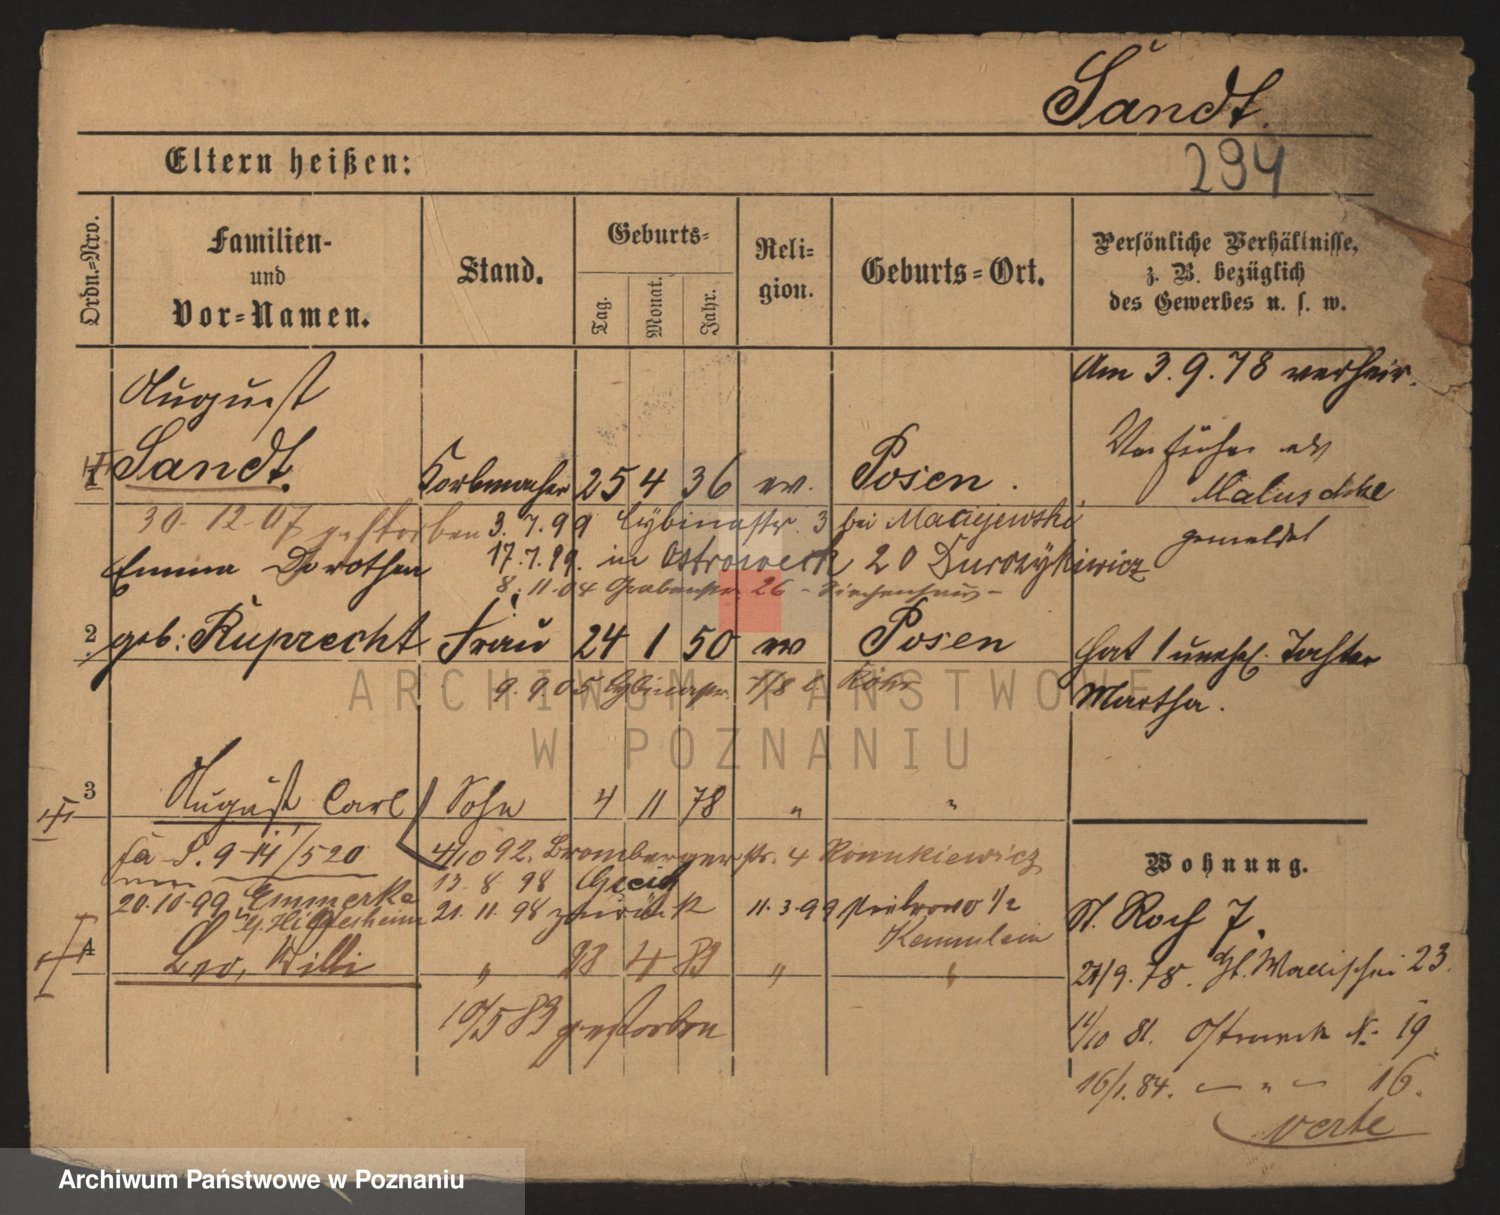 Sandt.
294
Eltern heißen:
Ordn.-Nro.
Familien-
und
Vor-Namen.
Stand.
Geburts-
Tag.
Monat.
Jahr.
Reli-
gion.
Geburts-Ort.
Persönliche Verhältnisse,
z. B. bezüglich
des Gewerbes u. s. w.
August
1 Sandt. Korbmacher 25 4 36 ev. Posen.
Am 3.9.78 verheir.
War früher als
Maluschke
gemeldet
30. 12. 07 gestorben 3.7.99 Cybinastr. 3 bei Maciejewski
Emma Dorothea 17.7.99. in Ostrowek 20 Durszykiewicz
8.11.04 Grabenstr. 26 - Siechenhaus -
2 geb: Ruprecht Frau 24 1 50 ev Posen
Hat 1 unehel. Tochter
Martha.
9.9.05 Cybinastr. 7/8 b Röhr
ARCHIWUM PAŃSTWOWE
W POZNANIU
3 August Carl Sohn 4 11 78 " "
S. 9 14/520 4/10 92. Brombergerstr. 4 Romkiewicz
13.8.98
20.10.99 21.11.98 zurück 11.3.99
Hildesheim
Kemnlein
4 Leo, Willi " 28 4 83 " "
10/5 83 gestorben
Wohnung.
St. Roch 7.
21/9.78. Gr. Wallischei 23.
14/10 81. Ostrowek N. 19
16/1.84. — " — 16.
verte
Archiwum Państwowe w Poznaniu